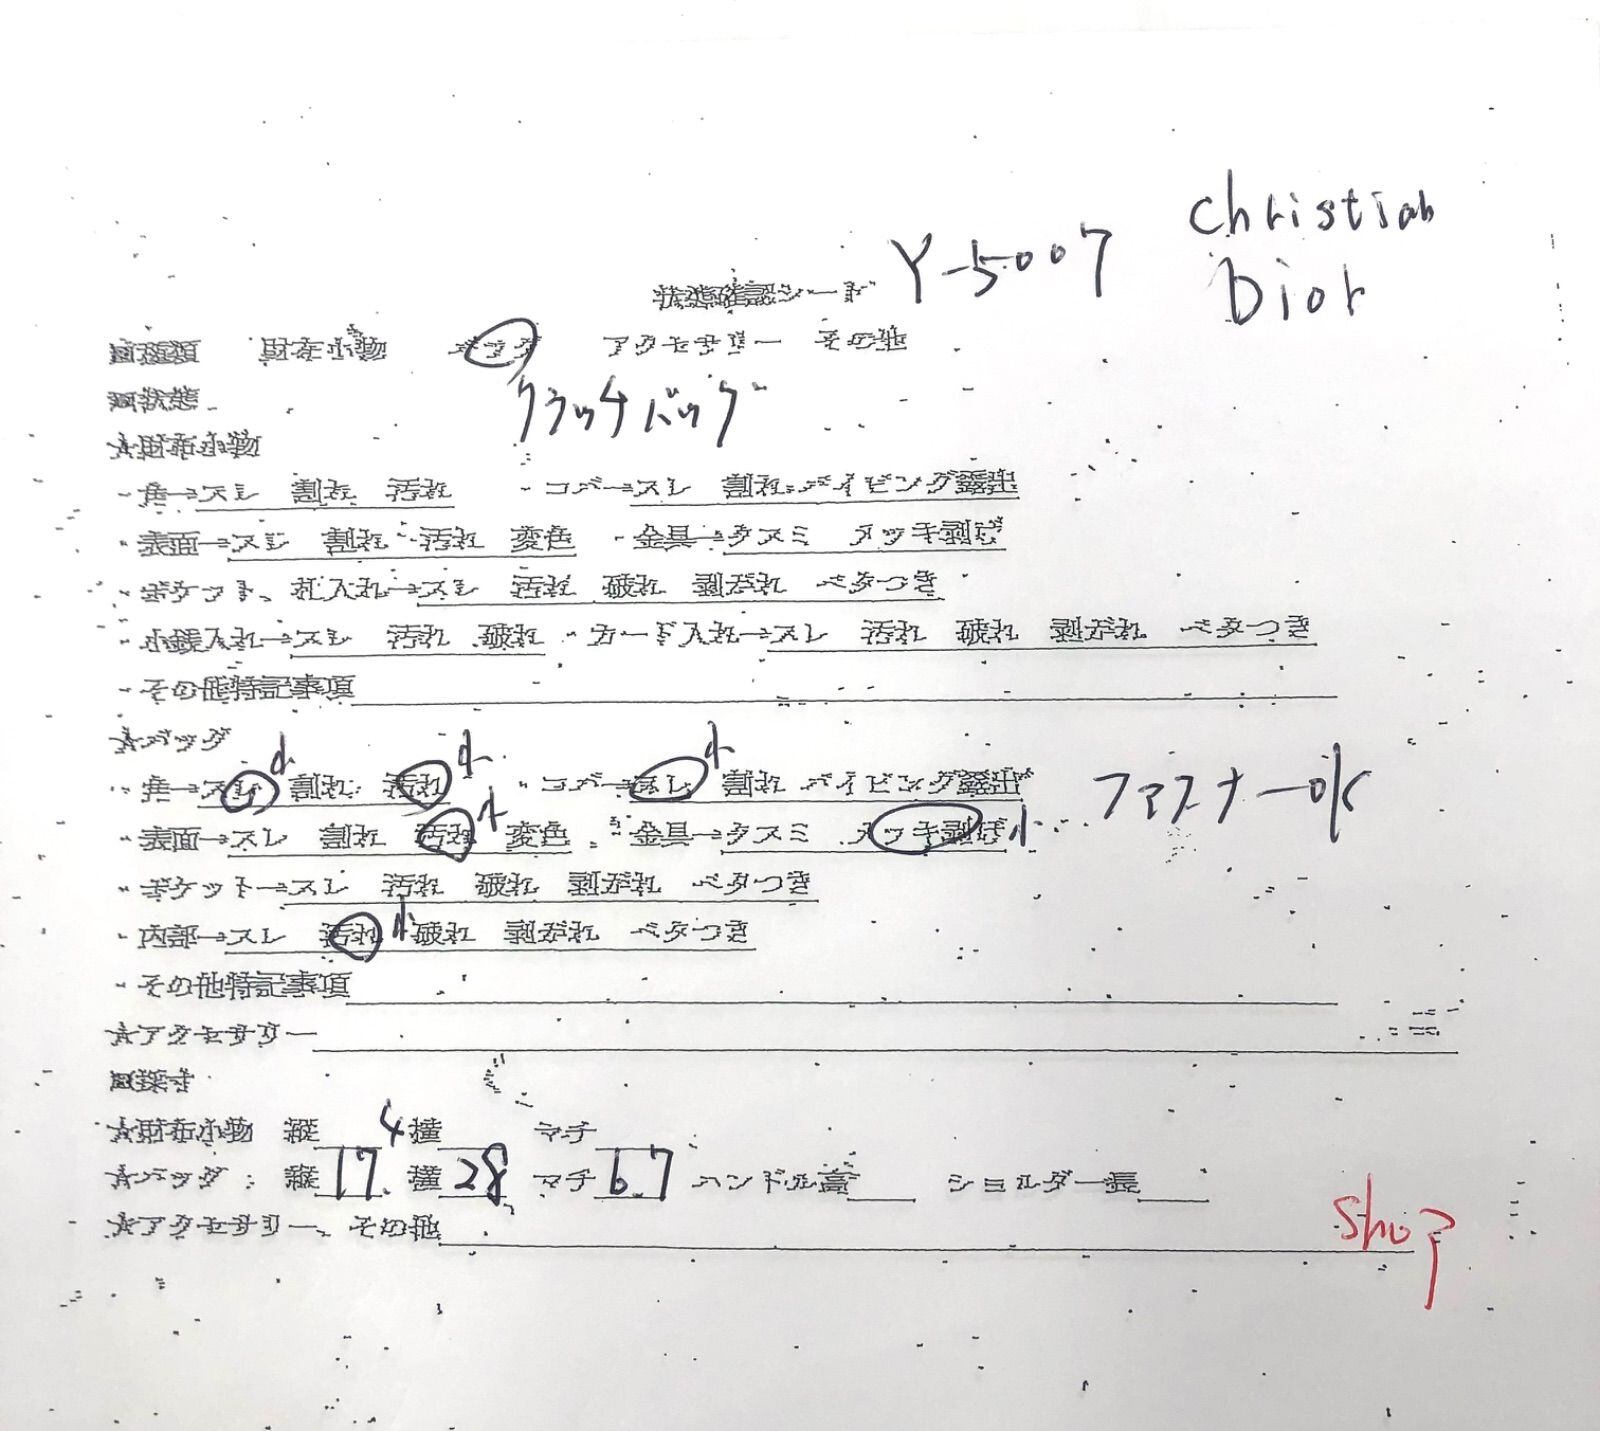 Christian
Dior
Y-5007
状態確認シート
■種類 財布小物 バッグ アクセサリー その他
クラッチバッグ
■状態
★財布小物
・角→スレ 割れ 汚れ ・コバ→スレ 割れ パイピング露出
・表面→スレ 割れ 汚れ 変色 ・金具→クスミ メッキ剥げ
・ポケット、札入れ→スレ 汚れ 破れ 剥がれ ベタつき
・小銭入れ→スレ 汚れ 破れ ・カード入れ→スレ 汚れ 破れ 剥がれ ベタつき
・その他特記事項
★バッグ
・角→スレ小 割れ 汚れ小 ・コバ→スレ小 割れ パイピング露出 ファスナーOK
・表面→スレ 割れ 汚れ小 変色 ・金具→クスミ メッキ剥げ小
・ポケット→スレ 汚れ 破れ 剥がれ ベタつき
・内部→スレ 汚れ小 破れ 剥がれ ベタつき
・その他特記事項
★アクセサリー
■採寸
★財布小物 縦 4 横 マチ
★バッグ:縦17. 横28 マチ6.7 ハンドル高 ショルダー長
★アクセサリー、その他
Shop